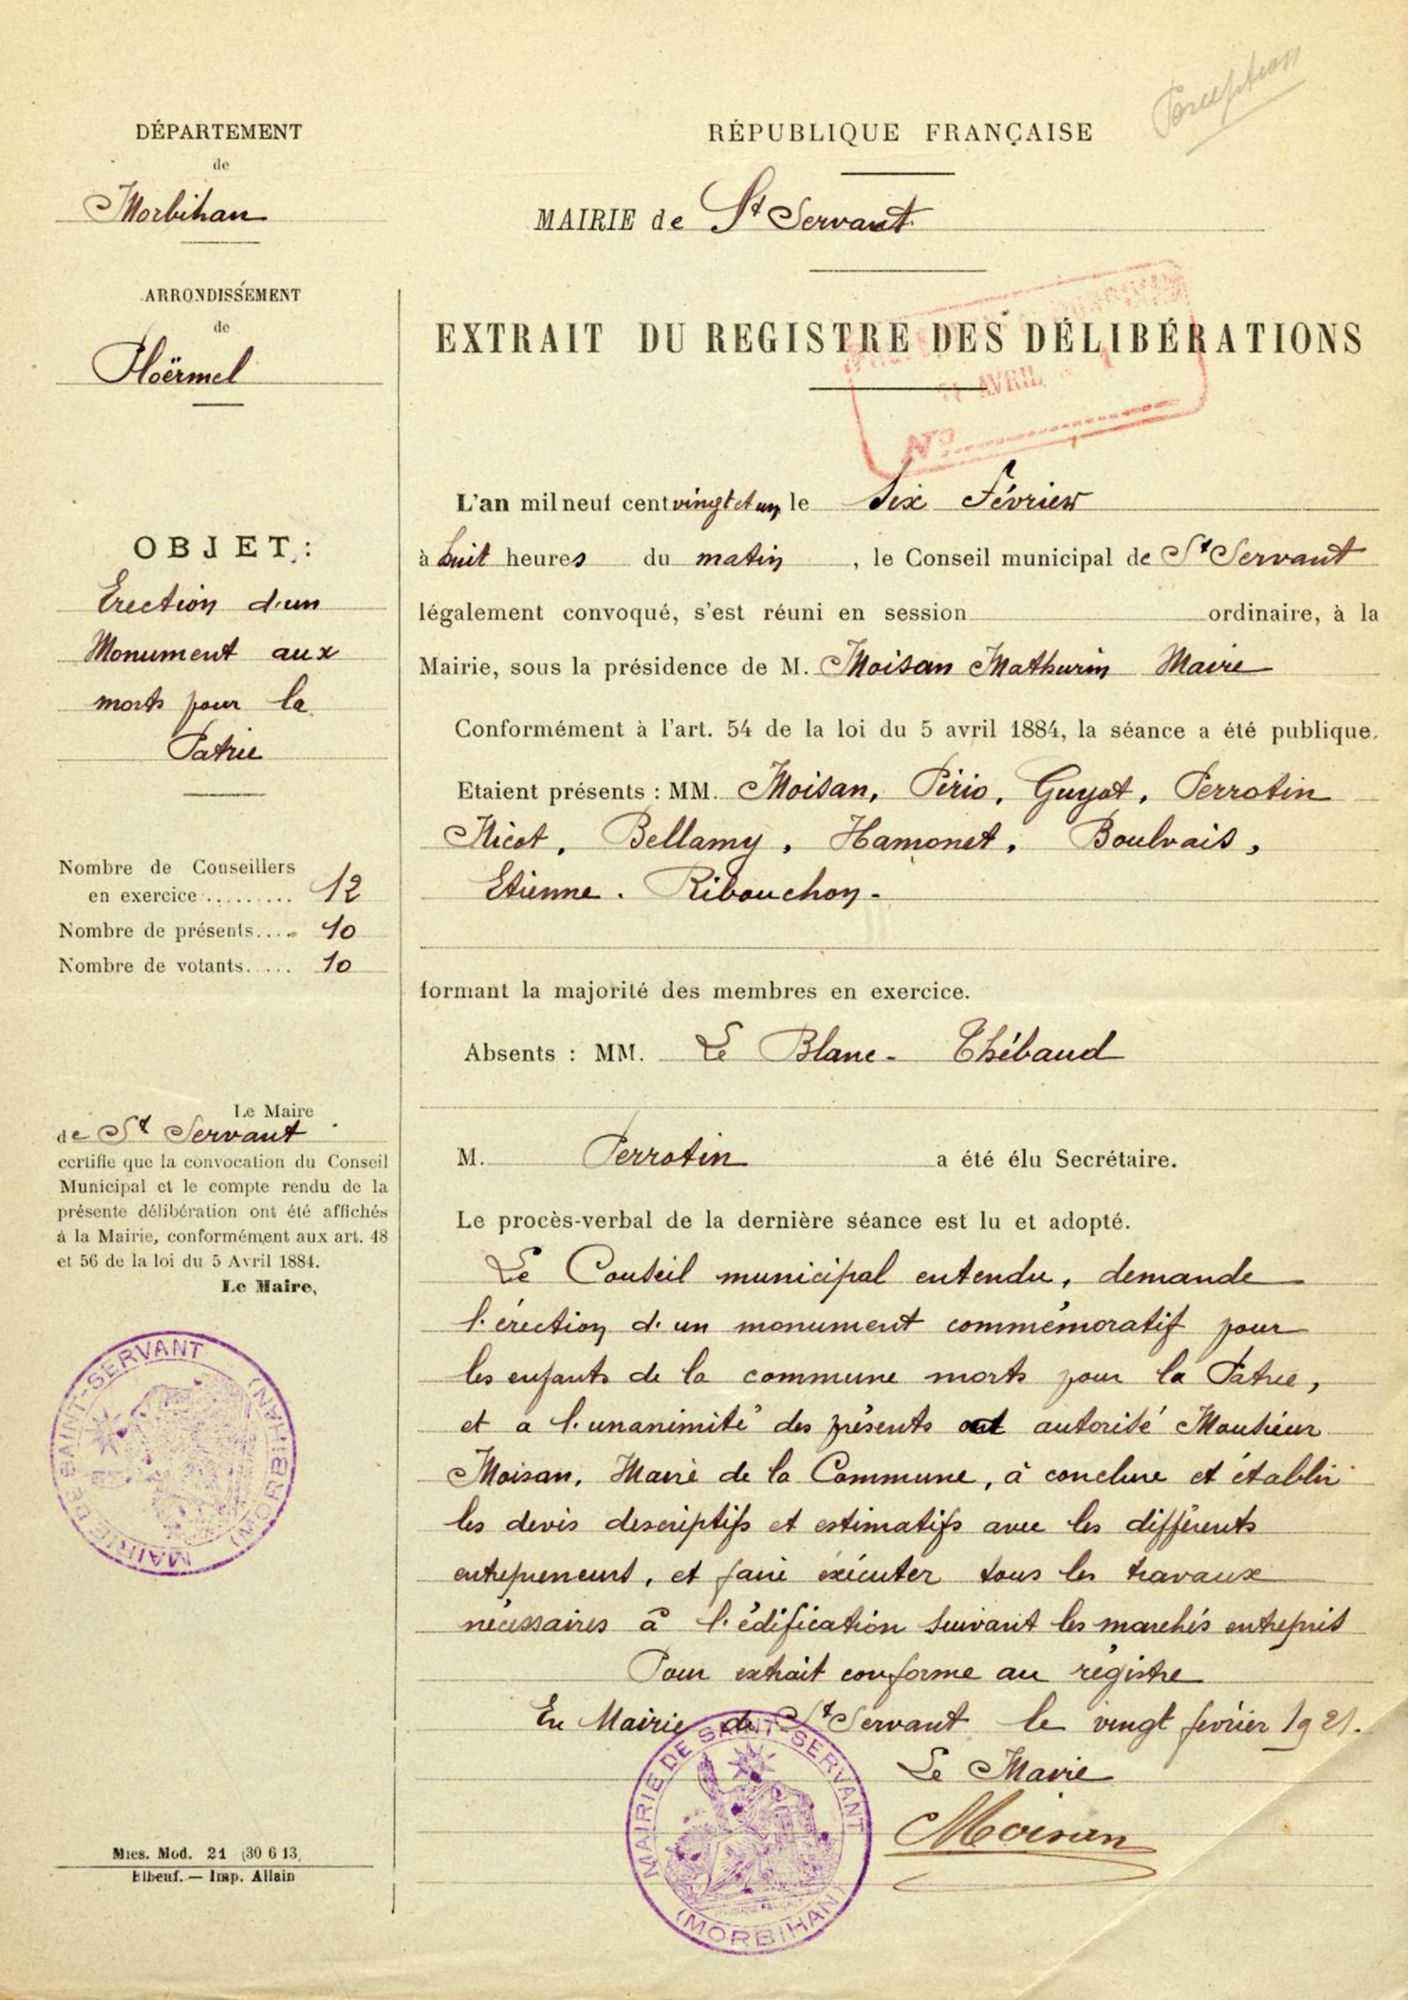 Perception
DÉPARTEMENT
de
Morbihan
ARRONDISSEMENT
de
Ploërmel
OBJET :
Erection d'un
Monument aux
morts pour la
Patrie
Nombre de Conseillers
en exercice ......... 12
Nombre de présents.... 10
Nombre de votants..... 10
Le Maire
de St Servant
certifie que la convocation du Conseil
Municipal et le compte rendu de la
présente délibération ont été affichés
à la Mairie, conformément aux art. 48
et 56 de la loi du 5 Avril 1884.
Le Maire,
MAIRIE DE SAINT-SERVANT
(MORBIHAN)
Mies. Mod. 21 (30 6 13)
Elbeuf. — Imp. Allain
RÉPUBLIQUE FRANÇAISE
MAIRIE de St Servant
EXTRAIT DU REGISTRE DES DÉLIBÉRATIONS
AVRIL
No
L'an mil neuf cent vingt et un le Six Février
à huit heures du matin, le Conseil municipal de St Servant
légalement convoqué, s'est réuni en session ordinaire, à la
Mairie, sous la présidence de M. Moisan Mathurin Maire
Conformément à l'art. 54 de la loi du 5 avril 1884, la séance a été publique.
Etaient présents : MM. Moisan, Pirio, Guyot, Perrotin
Nicot, Bellamy, Hamonet, Boulvais,
Etienne. Ribouchon-
formant la majorité des membres en exercice.
Absents : MM. Le Blanc- Thébaud
M. Perrotin a été élu Secrétaire.
Le procès-verbal de la dernière séance est lu et adopté.
Le Conseil municipal entendu, demande
l'érection d'un monument commémoratif pour
les enfants de la commune morts pour la Patrie,
et a l'unanimité des présents ont autorisé Monsieur
Moisan, Maire de la Commune, à conclure et établir
les devis descriptifs et estimatifs avec les différents
entrepreneurs, et faire éxécuter tous les travaux
nécessaires à l'édification suivant les marchés entrepris
Pour extrait conforme au régistre
En Mairie de St Servant le vingt février 1921.
Le Maire
Moisan
MAIRIE DE SAINT-SERVANT
(MORBIHAN)